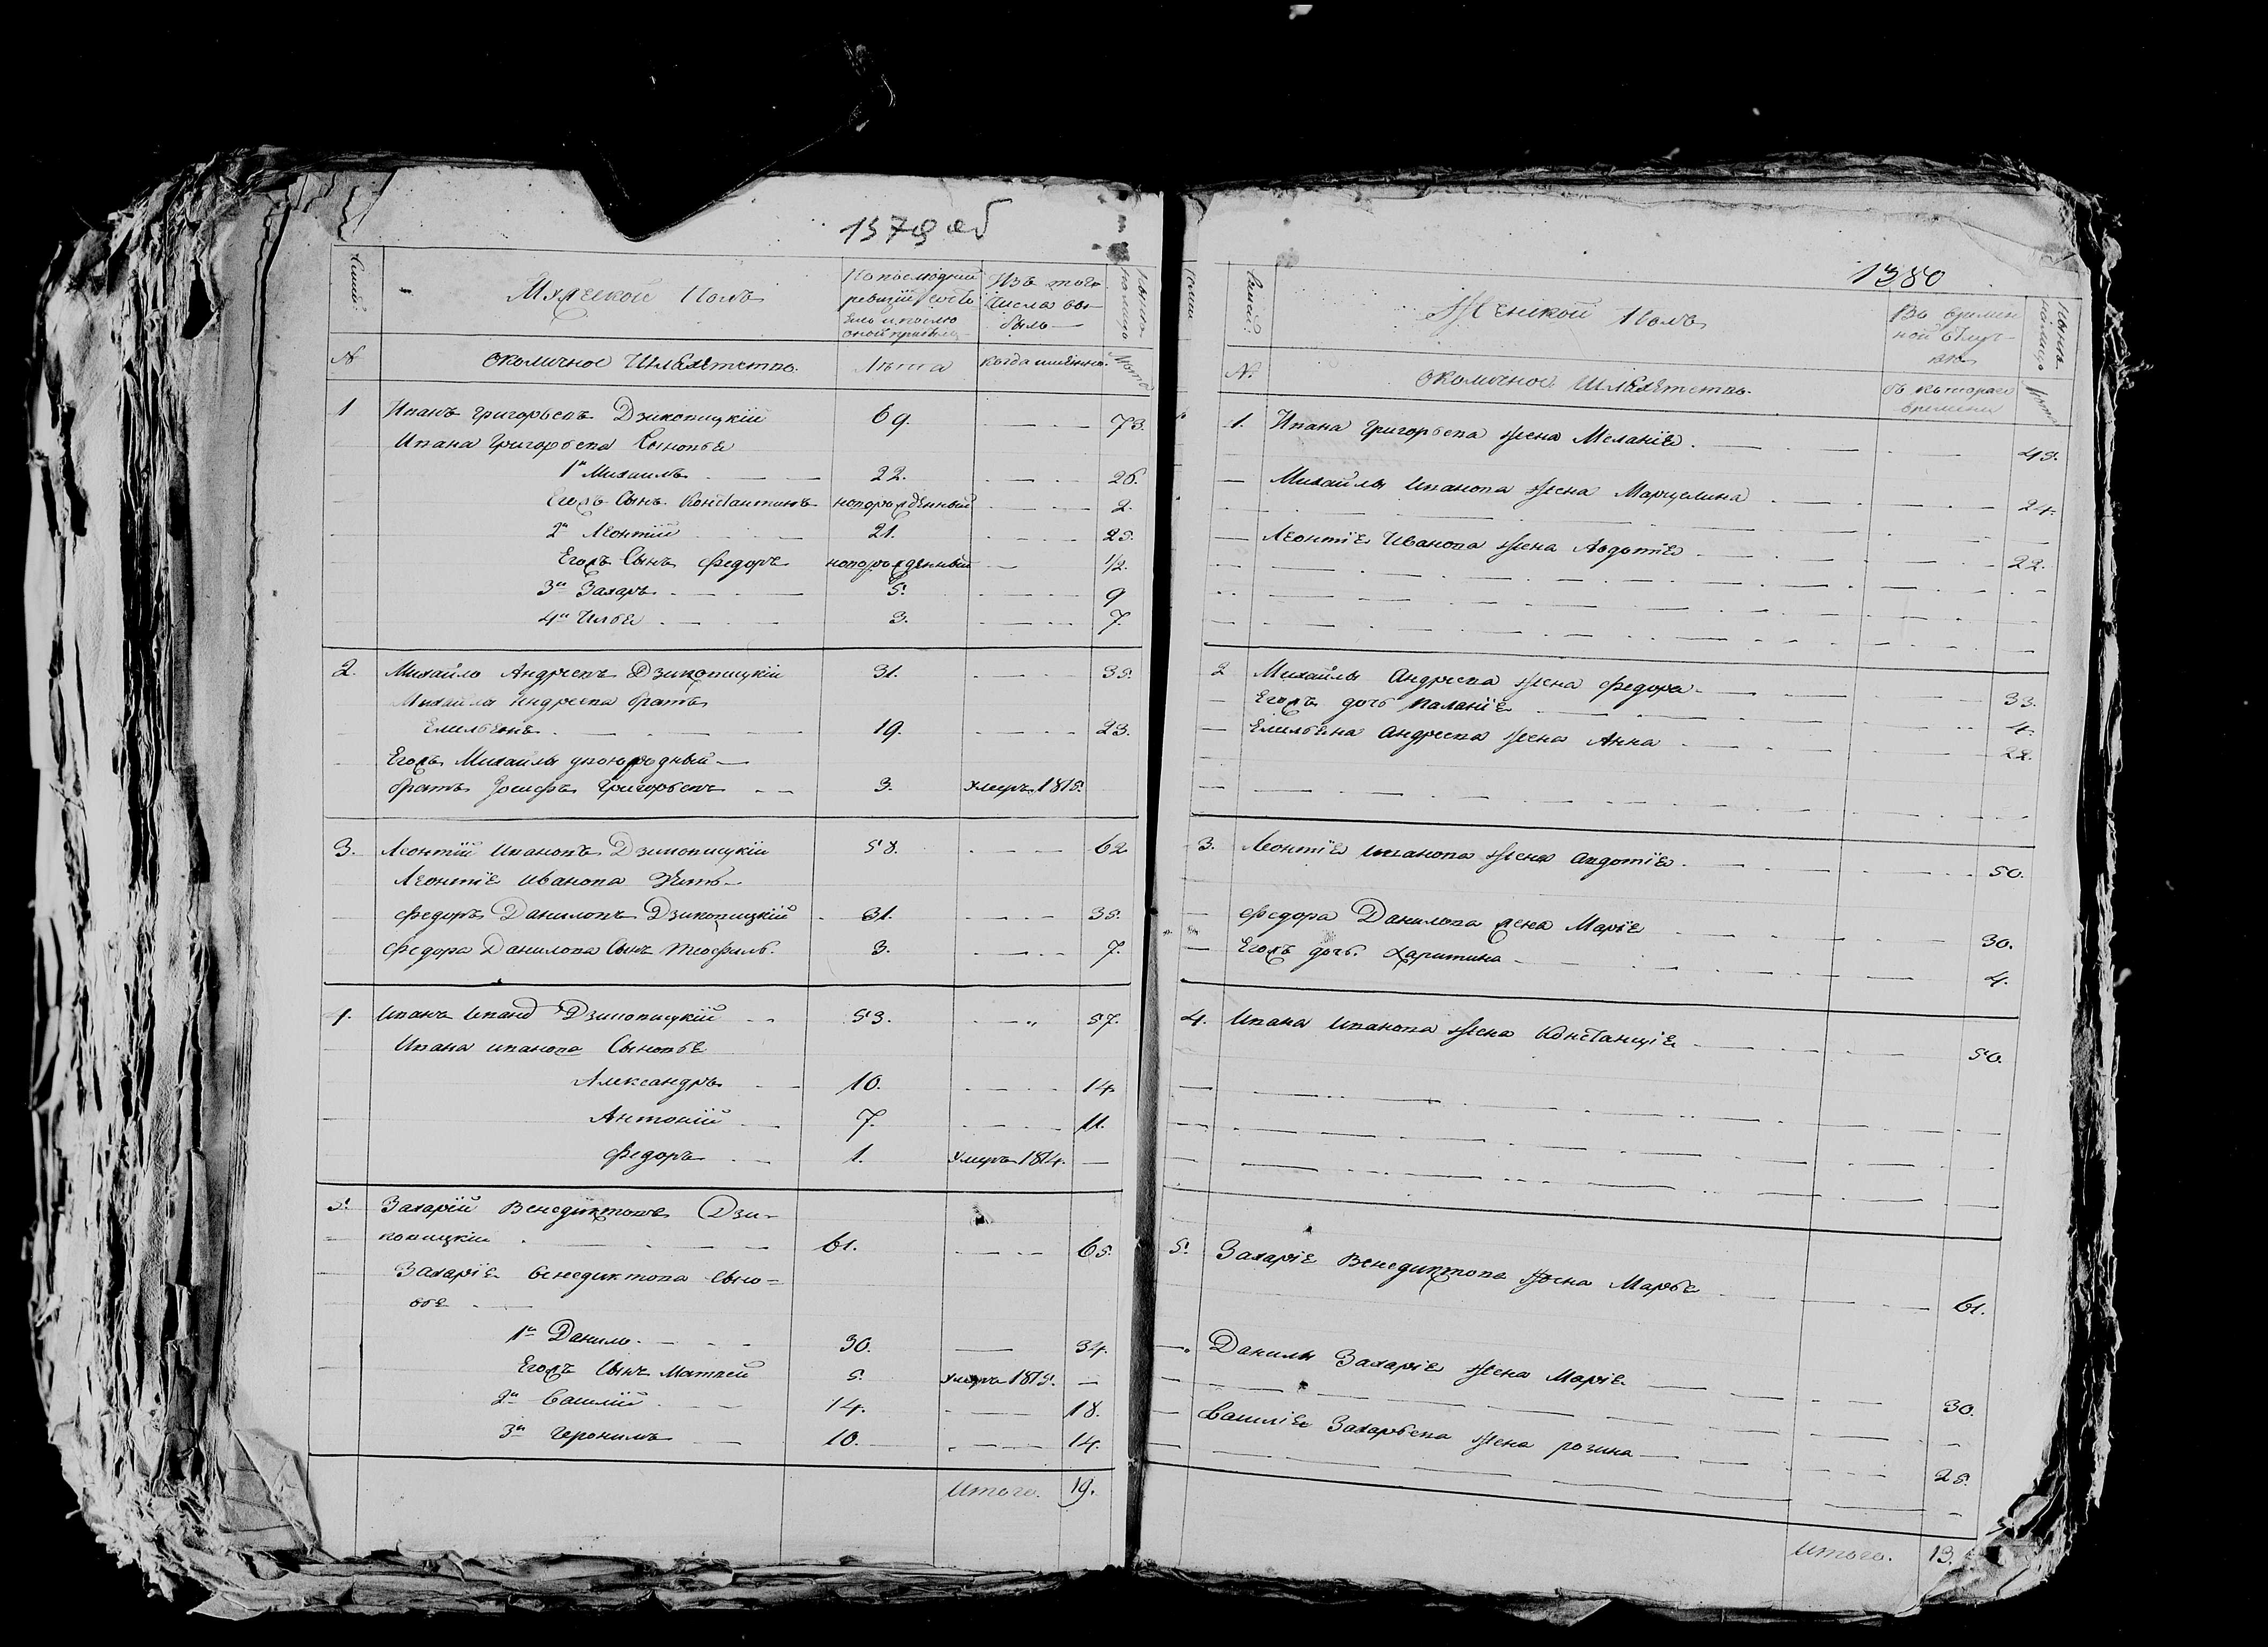 1379 об
Семьи
Мужеской Полъ
По последней
ревизіи состо
Изъ того
числа вы-
было
Ныне
на лицо
№
околичное Шляхетство.
Лѣта
когда имянно.
Лѣта
1 Иванъ Григорьевъ Дзиковицкій 69. 73.
Ивана Григорьева Сыновья
1й Михаилъ 22. 26.
Егожъ Сынъ Константинъ новорожденный 2.
2й Леонтій 21. 25.
Егожъ Сынъ Федоръ новорожденный 1/2.
3й Захаръ 5. 9
4й Илья 3. 7.
2. Михайло Андреевъ Дзиковицкій 31. 35.
Михайлы Андреева братъ
Емельянъ 19. 23.
Егожъ Михайлы двоюродный
братъ Іосифъ Григорьевъ 3. умеръ 1815.
3. Леонтій Ивановъ Дзиковицкій 58. 62
Леонтія Иванова Зять
Федоръ Даниловъ Дзиковицкій 31. 35.
Федора Данилова Сынъ Теофилъ. 3. 7.
4. Иванъ Иванов Дзиковицкій 53. 57.
Ивана Иванова Сыновья
Александръ 10. 14.
Антоній 7. 11.
Федоръ 1. умеръ 1814.
5. Захарій Венедиктовъ Дзи-
ковицкій 61. 65.
Захарія Венедиктова Сыно=
вья
1й Данило 30. 34.
Егожъ Сынъ Матвей 5. умеръ 1815.
2й Василій 14. 18.
3й Іеронимъ 10. 14.
Итого. 19.
1380
Семьи
Женской Полъ
Во времен
ной отлуч-
ке
Ныне
на лицо
№.
околичное Шляхетство.
съ котораго
времени
Лѣта
1. Ивана Григорьева жена Меланія 45.
Михайлы Иванова жена Марцелина 24.
Леонтія Иванова жена Авдотія 22.
2 Михайлы Андреева жена Федора 33.
Егожъ дочь Паланія 4.
Емельяна Андреева жена Анна 22.
3. Леонтія Иванова жена Авдотія 50.
Федора Данилова жена Марія 30.
Егожъ дочь Харитина 4.
4. Ивана Иванова жена Констанція 50.
5. Захарія Венедиктова жена Марья 61.
Данилы Захарія жена Марія 30.
Василія Захарьева жена розина 25.
Итого. 13.